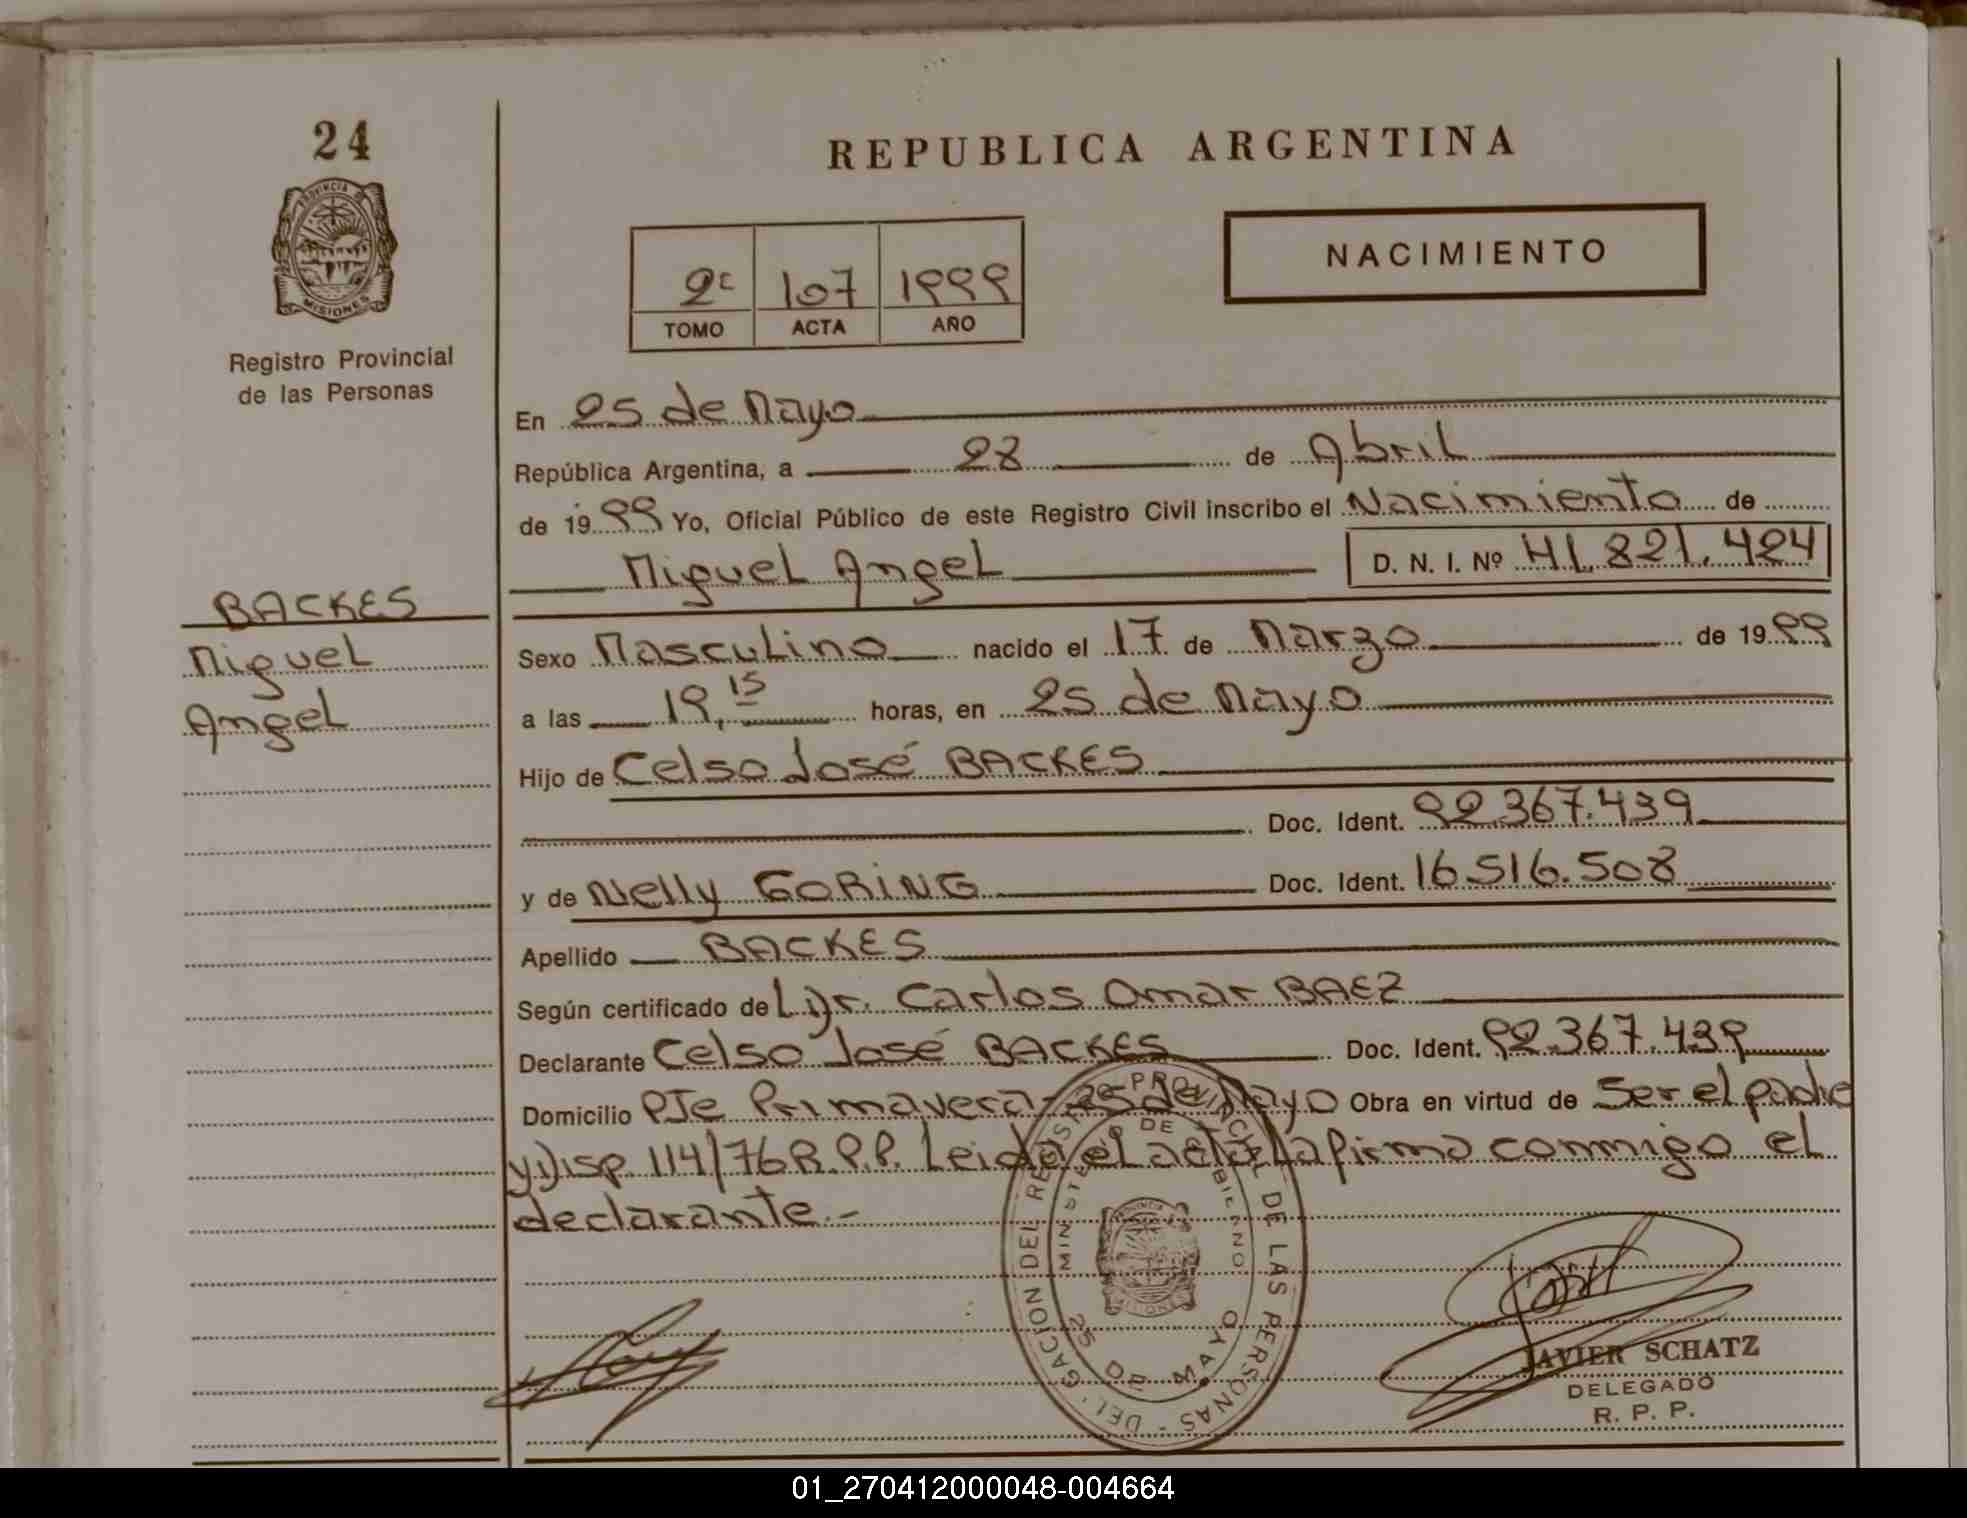 24
PROVINCIA DE
MISIONES
Registro Provincial
de las Personas
REPUBLICA ARGENTINA
NACIMIENTO
2º 107 1999
TOMO ACTA AÑO
En 25 de Mayo
República Argentina, a 28 de Abril
de 1999 Yo, Oficial Público de este Registro Civil inscribo el Nacimiento de
Miguel Angel D. N. I. Nº 41.821.424
BACKES
Miguel
Angel
Sexo Masculino nacido el 17 de Marzo de 1999
a las 19,15 horas, en 25 de Mayo
Hijo de Celso José BACKES
Doc. Ident. 92.367.439
y de Nelly GORING Doc. Ident. 16.516.508
Apellido BACKES
Según certificado de Dr. Carlos Omar BAEZ
Declarante Celso José BACKES Doc. Ident. 92.367.439
Domicilio PJe Primavera-25 de Mayo Obra en virtud de Ser el padre
y Disp. 114/76 R.P.P. Leida el acta la firma conmigo el
declarante.-
DELEGACION DEL REGISTRO PROVINCIAL DE LAS PERSONAS
MINISTERIO DE GOBIERNO
25 DE MAYO
MISIONES
JAVIER SCHATZ
DELEGADO
R. P. P.
01_270412000048-004664